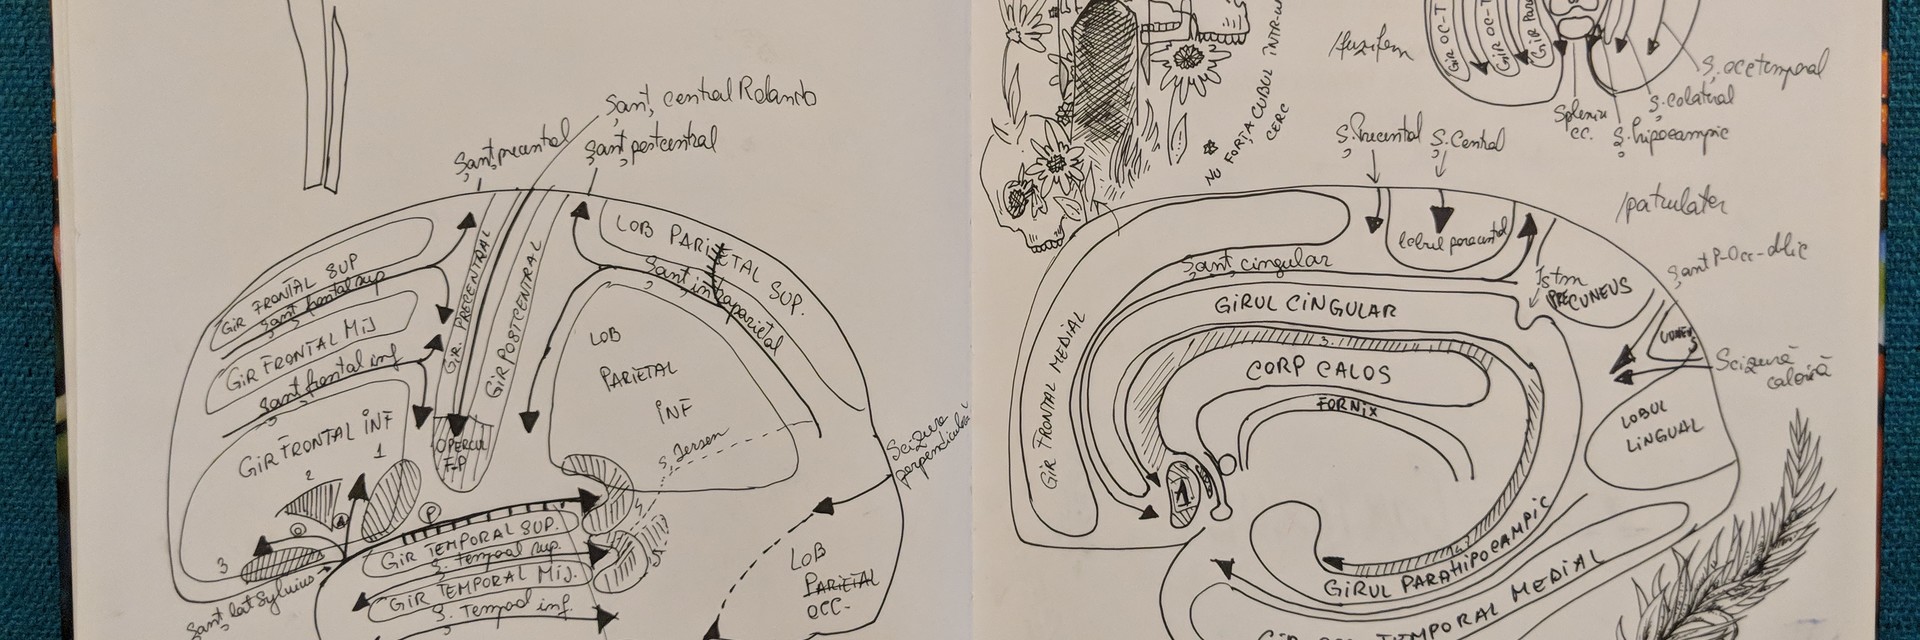 Șanț central Rolando
Șanț precentral
Șanț postcentral
GIR FRONTAL SUP
Șanț frontal sup
GIR FRONTAL MIJ
Șanț frontal inf
GIR FRONTAL INF
1
2
3
GIR. PRECENTRAL
GIR POSTCENTRAL
OPERCUL
F-P
LOB PARIETAL SUP.
Șanț intraparietal
LOB
PARIETAL
INF
S. Jensen
Scizura
perpendiculară
P
GIR TEMPORAL SUP.
S. temporal sup.
GIR TEMPORAL MIJ.
S. Temporal inf.
Șanț lat Sylvius
LOB
PARIETAL
OCC-
NU FORȚA CUBUL ÎNTR-UN
CERC
/fuziform
GIR OC-T
GIR OC-T
GIR PARA
Splenium
CC.
Ș. occtemporal
Ș. colateral
Ș. hipocampic
Ș. Precentral
Ș. Central
/patrulater
lobul paracentral
Șanț cingular
Istm
PRECUNEUS
Șant P-Occ-oblic
CUNEUS
GIRUL CINGULAR
3.
CORP CALOS
FORNIX
GIR FRONTAL MEDIAL
1
LOBUL
LINGUAL
GIRUL PARAHIPOCAMPIC
TEMPORAL MEDIAL